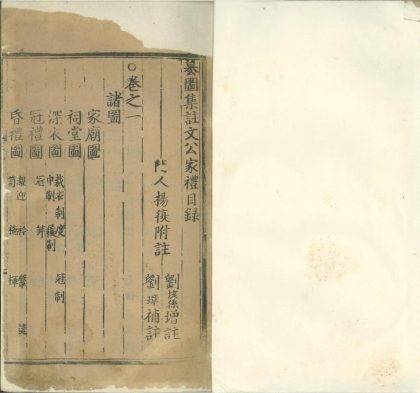 纂圖集註文公家禮目錄
門人楊復附註
劉垓孫增註
劉璋補註
○卷之一
諸圖
家廟圖
祠堂圖
深衣圖 裁衣制度 冠制
巾制 履制
冠禮圖 冠 笄
昏禮圖 親迎 衿 鞶 篋
笥 椸 楎